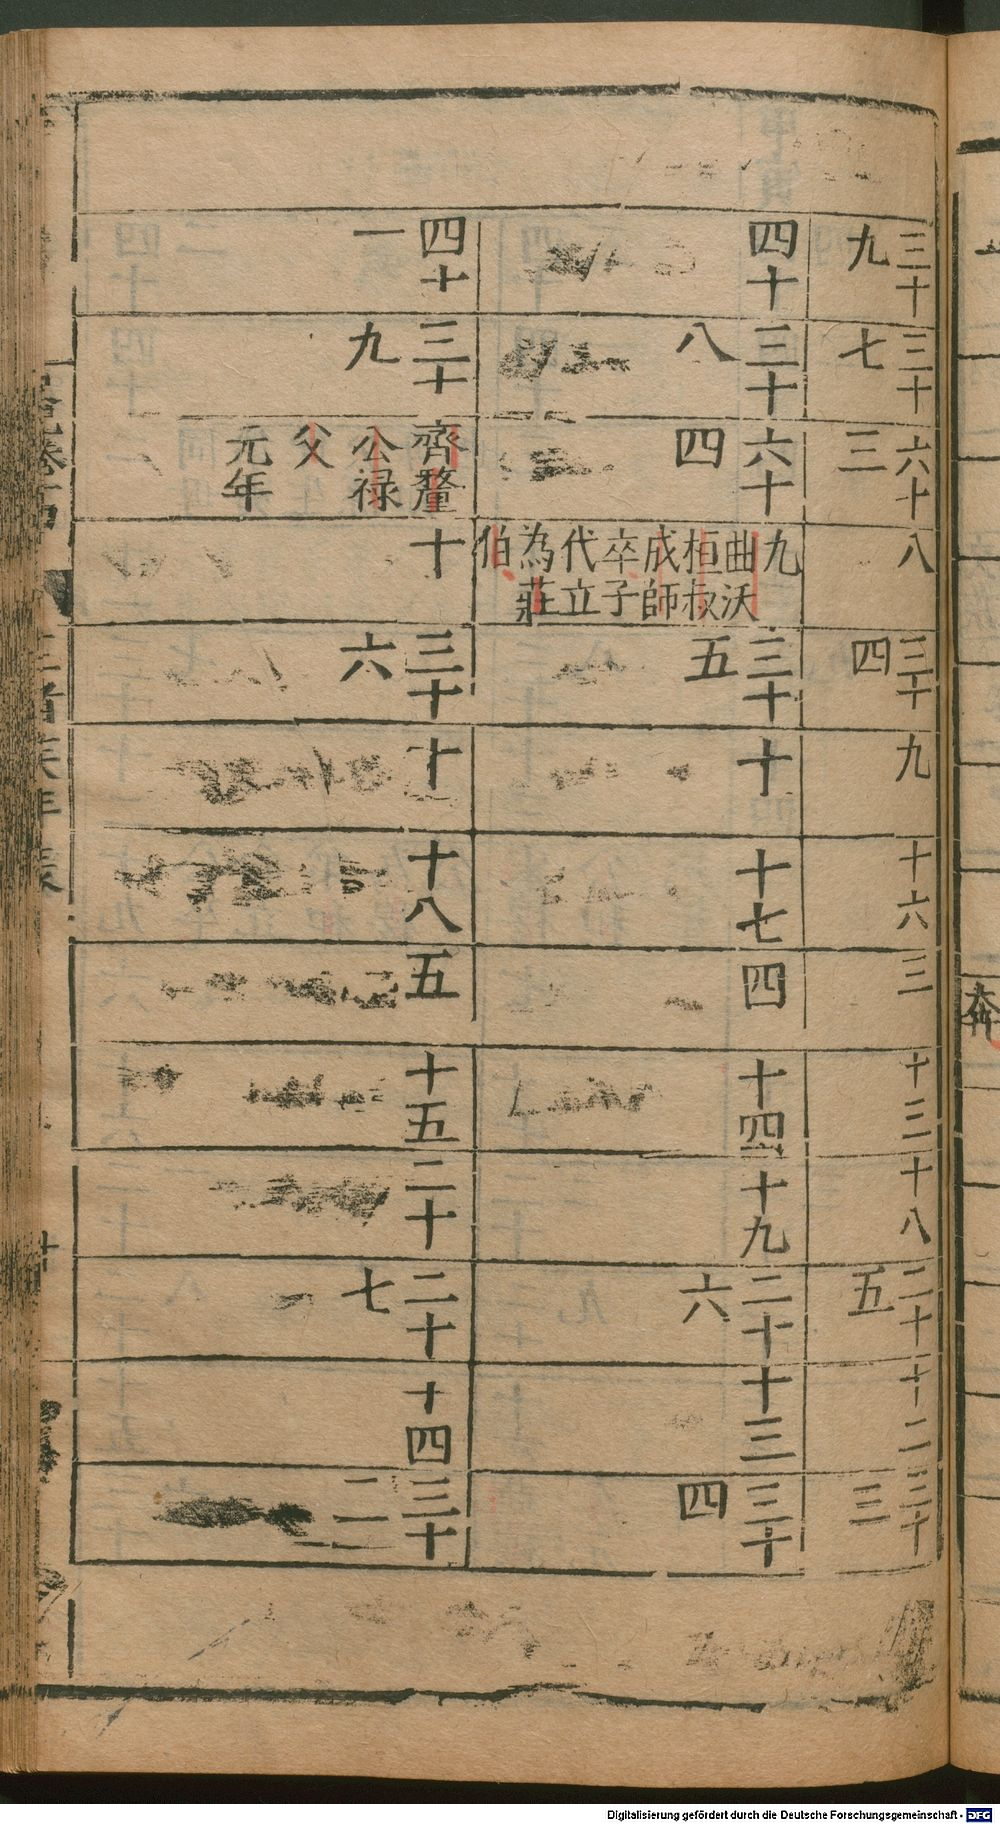 三十九
三十七
六十三
八
三十四
九
十六
三
十三
十八
二十五
十二
三十三
四十
三十八
六十四
九
曲沃
桓叔
成師
卒子
代立
為莊
伯
三十五
十
十七
四
十四
十九
二十六
十三
三十四
四十一
三十九
齊釐
公祿
父
元年
十
三十六
十
十八
五
十五
二十
二十七
十四
三十二
Digitalisierung gefördert durch die Deutsche Forschungsgemeinschaft - DFG